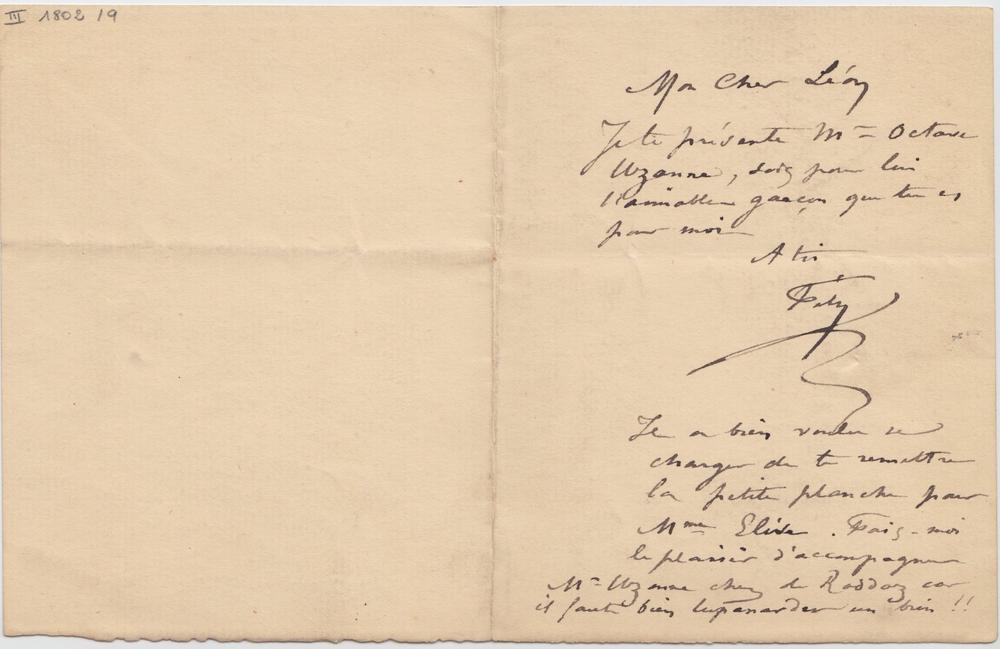 III 1802 / 9
Mon Cher Léon
Je te présente Mr Octave
Uzanne, sois pour lui
l'aimable garçon que tu es
pour moi
A toi
Fély
Il a bien voulu se
charger de te remettre
la petite planche pour
Mme Elisa. Fais-moi
le plaisir d'accompagner
Mr Uzanne chez de
car
il faut bien lupanarder un brin !!